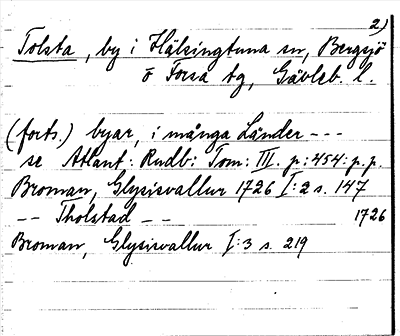 2)
Tolsta, by i Hälsingtuna sn, Bergsjö
o Forsa tg, Gävleb. l.
(forts.) byar, i många Länder ---
se Atlant: Rudb: Tom: III. p: 454: p.p.
Broman, Glysisvallur 1726 I:2 s. 147
-- Tholstad -- 1726
Broman, Glysisvallur I:3 s. 219